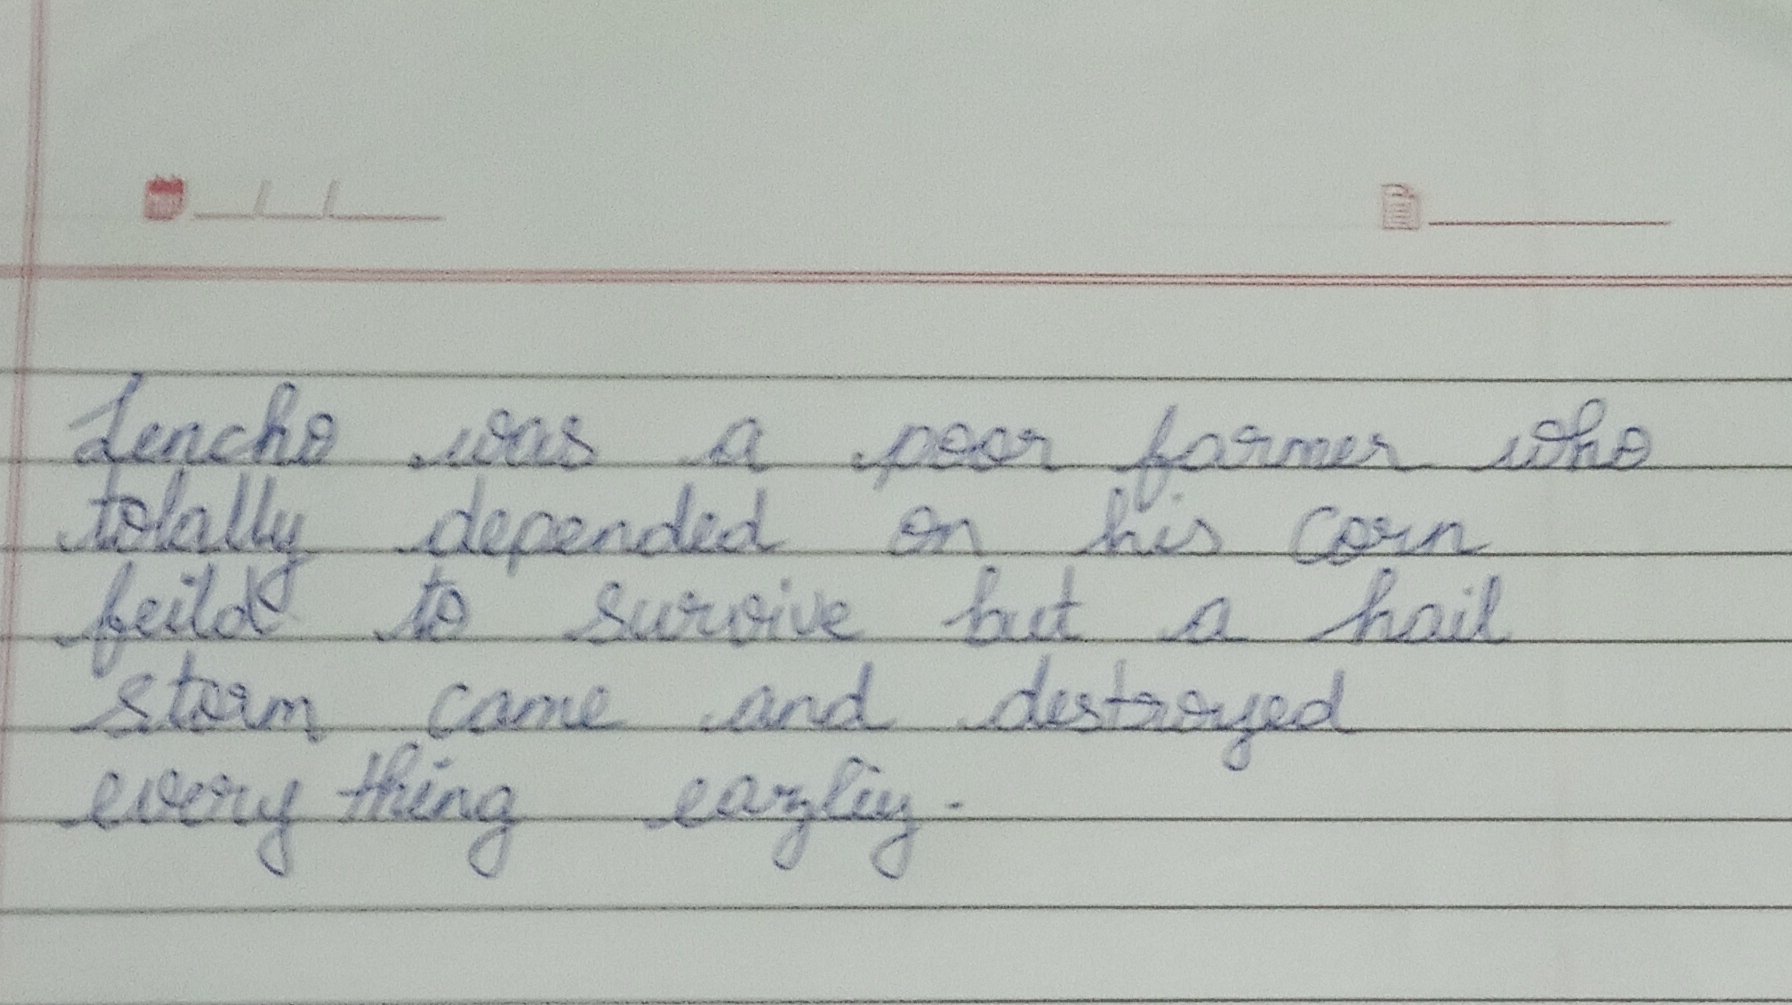 Lencho was a poor farmer who
totally depended on his corn
feild to survive but a hail
storm came and destroyed
every thing eazliy.